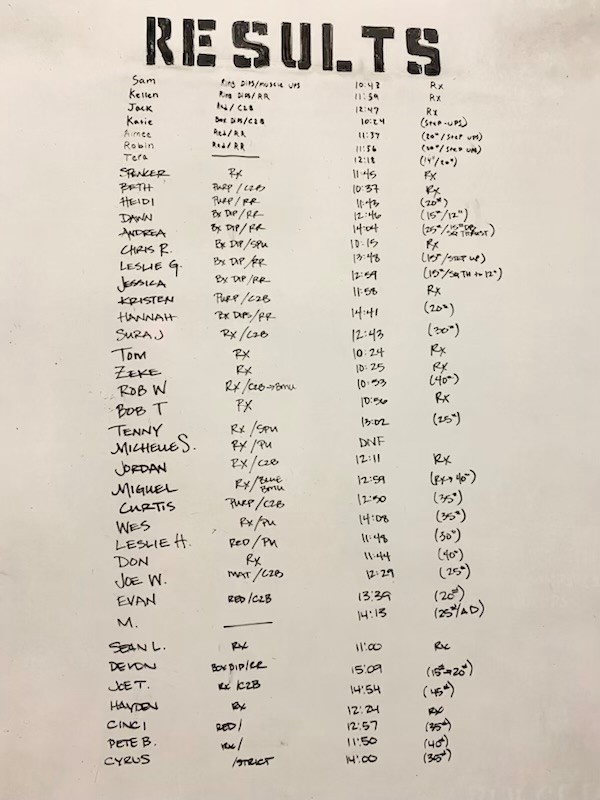 RESULTS
Sam Ring Dips/muscle ups 10:43 Rx
Kellen Ring Dips/RR 11:39 Rx
Jack Red/C2B 12:47 Rx
Katie Box Dips/C2B 10:24 (Step-ups)
Aimee Red/RR 11:37 (20"/step ups)
Robin Red/RR 11:56 (20"/step ups)
Tera 12:18 (14"/20")
SPENCER RX 11:45 RX
BETH PURP/C2B 10:37 RX
HEIDI PURP/RR 11:43 (20#)
DAWN BX DIP/RR 12:46 (15#/12")
ANDREA BX DIP/RR 14:04 (25#/15# DB SQ THRUST)
CHRIS R. BX DIP/SPU 10:15 RX
LESLIE G. BX DIP/RR 13:48 (15#/STEP UP)
JESSICA BX DIP/RR 12:59 (15#/SQ TH to 12")
KRISTEN PURP/C2B 11:58 RX
HANNAH BX DIPS/RR 14:41 (20#)
SURAJ RX/C2B 12:43 (30#)
TOM RX 10:24 RX
ZEKE RX 10:25 RX
ROB W RX/C2B→BMU 10:53 (40#)
BOB T RX 10:56 RX
TENNY RX/SPU 13:02 (25#)
MICHELLE S. RX/PU DNF
JORDAN RX/C2B 12:11 RX
MIGUEL RX/BLUE BMU 12:59 (RX→40#)
CURTIS PURP/C2B 12:50 (35#)
WES RX/PU 14:08 (35#)
LESLIE H. RED/PU 11:48 (30#)
DON RX 11:44 (40#)
JOE W. MAT/C2B 12:29 (25#)
EVAN RED/C2B 13:39 (20#)
M. 14:13 (25#/AD)
SEAN L. RX 11:00 RX
DEVON BOX DIP/RR 15:09 (15#→20#)
JOE T. RX/C2B 14:54 (45#)
HAYDEN RX 12:24 RX
CINCI RED/ 12:57 (35#)
PETE B. RX/ 11:50 (40#)
CYRUS /STRICT 14:00 (35#)